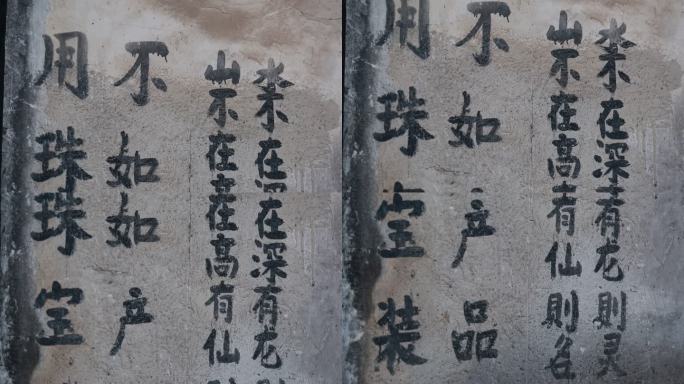 用珠珠宝
不如如产
山不在在高有仙
水不在在深有龙
用珠宝装
不如产品
山不在高有仙則名
水不在深有龙則灵